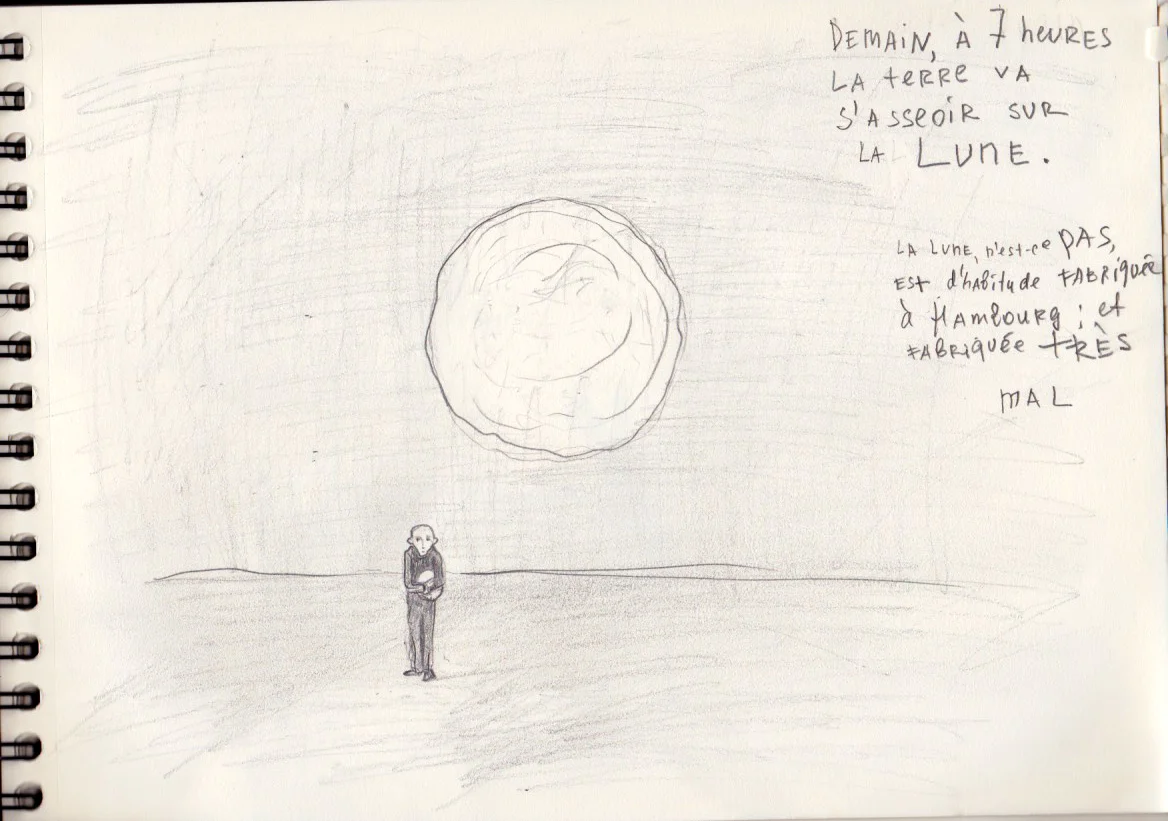 DEMAIN, À 7 heURES
LA teRRe VA
S'ASSEOIR SUR
LA LUNE.
LA LUNE, n'est-ce PAS,
EST d'hAbitude FABRIQUÉE
à HAmbOURg ; et
FABRIQUÉE tRÈS
MAL